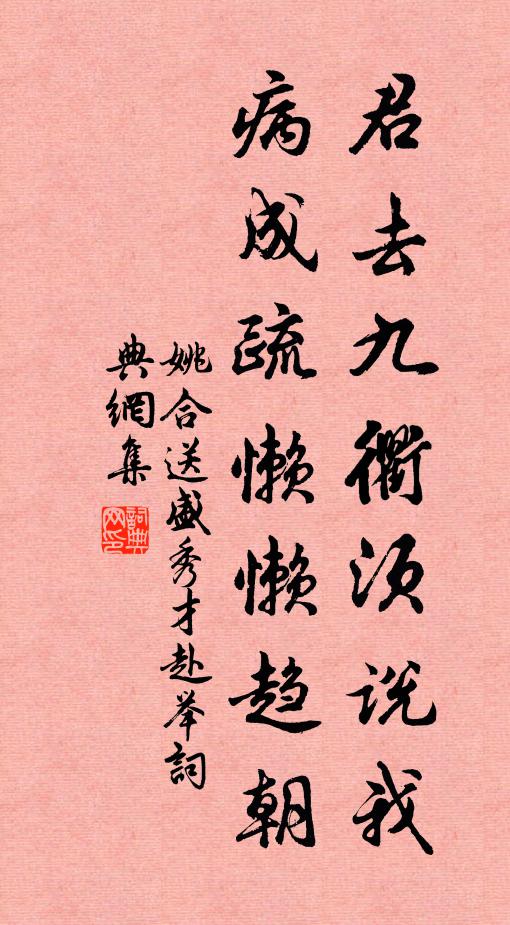 君去九衢须说我
病成疏懒懒趋朝
姚合送盛秀才赴举詞
典網集
詞典网印